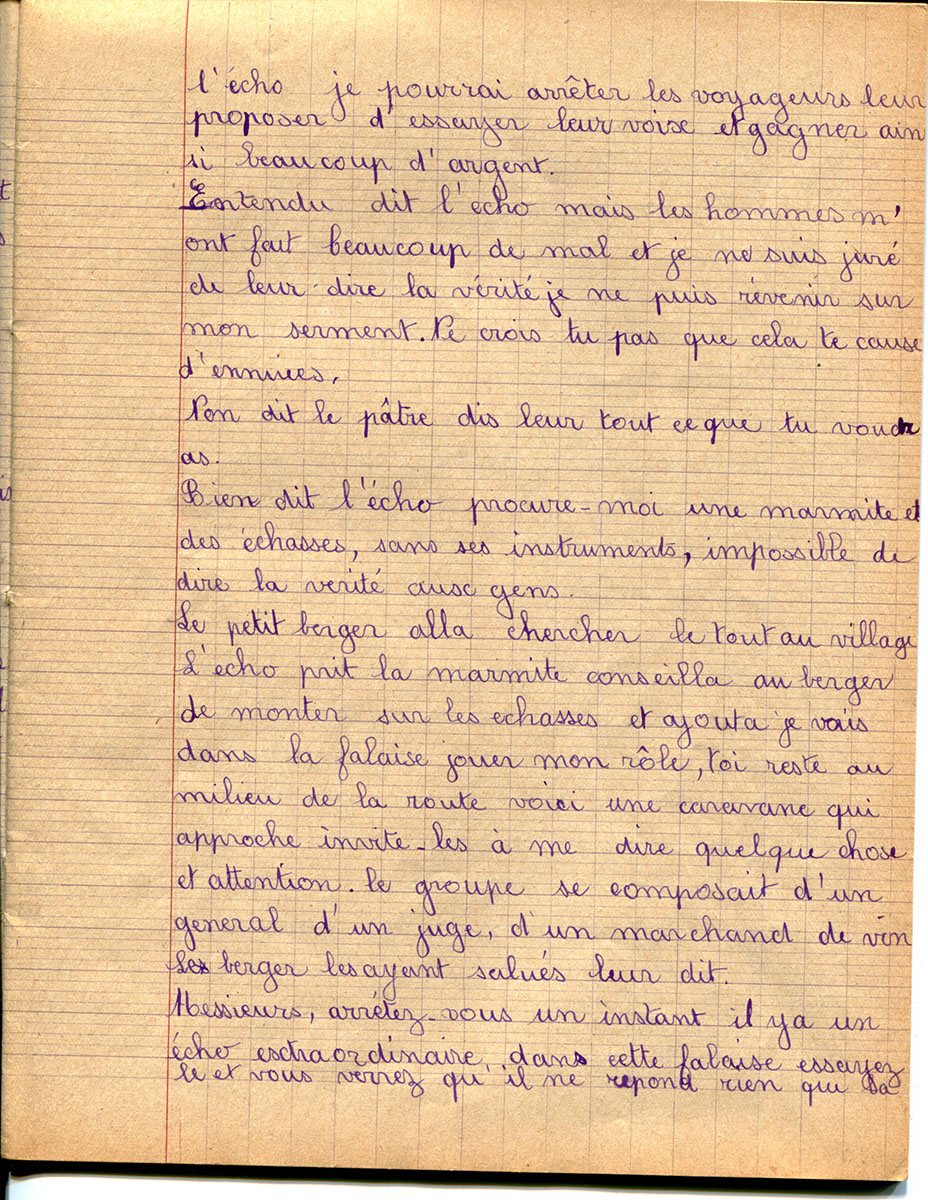 l'écho je pourrai arrêter les voyageurs leur
proposer d'essayer leur voix et gagner ain
si beaucoup d'argent.
Entendu dit l'écho mais les hommes m'
ont fait beaucoup de mal et je me suis juré
de leur dire la vérité je ne puis révenir sur
mon serment. Ne crois tu pas que cela te cause
d'ennuies.
Non dit le pâtre dis leur tout ce que tu voudr
as.
Bien dit l'écho procure-moi une marmite et
des échasses, sans ses instruments, impossible de
dire la verité aux gens.
Le petit berger alla chercher le tout au village
L'écho prit la marmite conseilla au berger
de monter sur les echasses et ajouta je vais
dans la falaise jouer mon rôle, toi reste au
milieu de la route voici une caravane qui
approche invite-les à me dire quelque chose
et attention. le groupe se composait d'un
general d'un juge, d'un marchand de vin
Le berger les ayant salués leur dit.
Messieurs, arrétez-vous un instant il ya un
écho extraordinaire dans cette falaise essayez
le et vous verrez qu'il ne repond rien que sa